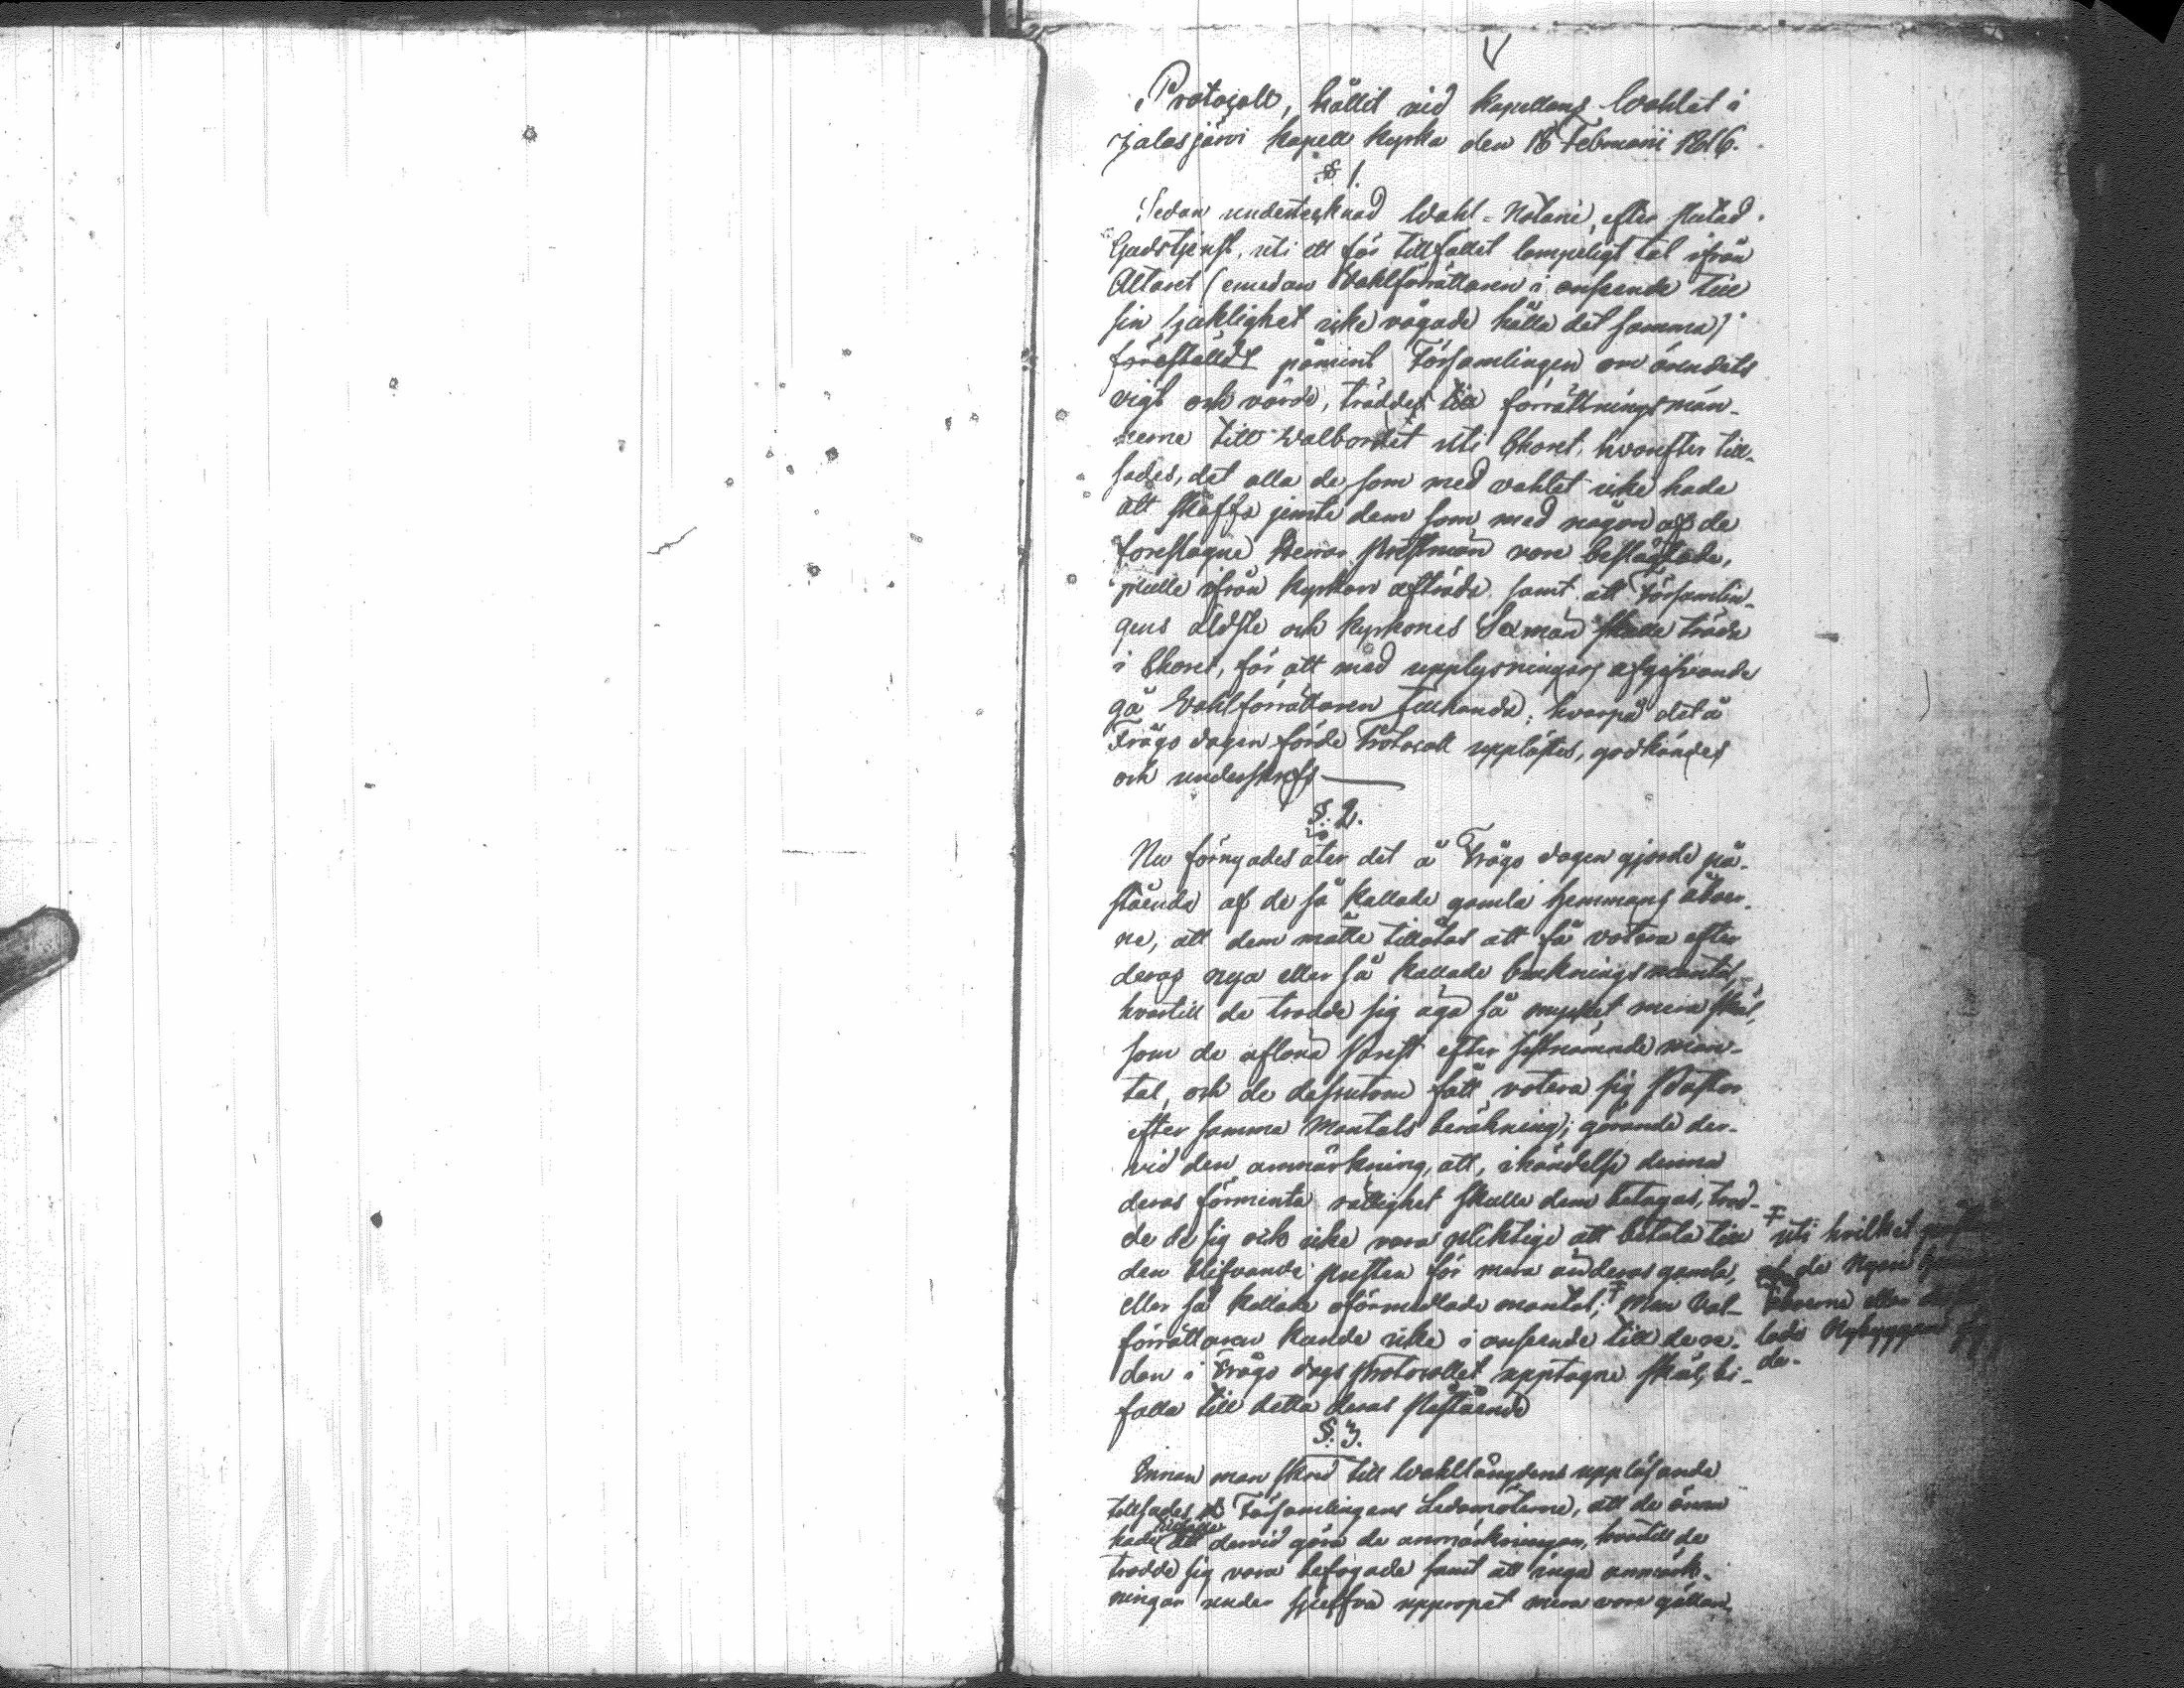 Protocoll, hållit vid Kapellans Wahlet i
Jalasjärvi Kapell Kyrka den 18 Februarii 1816.
§ 1.
Sedan undertecknad Wahl-Notarie, efter slutad
Gudstjenst, uti ett för tillfället lämpeligt tal ifrån
Altaret (emedan Wahlförrättaren i anseende till
sin sjuklighet icke vågade hålla det samma)
föreställdt påmint Församlingen om ärendets
vigt och värde, träddes till förrättningsmän-
nerne till Walbordet uti Choret, hvarefter till-
sades, det alla de som med wahlet icke hade
att skaffa jemte dem som med någon af de
föreslagne Herrar Prestmän voro beslägtade,
skulle ifrån Kyrkan afträda samt att Församlin-
gens äldste och Kyrkones Sexmän skulle träda
i Choret, för att med upplysningars afgifvande
gå Wahlförrättaren tillhanda; hvarpå det å
Frågo dagen förde Protocoll upplästes, godkändes
och underskrefs
§. 2.
Nu förnyades åter det å Frågo dagen gjorde på-
stående af de så kallade gamla Hemmans åboer-
ne, att dem måtte tillåtas att få votera efter
deras nya eller så kallade beräknings mantal,
hvartill de trodde sig äga så mycket mera skäl,
som de aflöna Prest efter sistnämnde man-
tal, och de dessutom fått votera sig Pastor
efter samma Mantals beräkning; görande der-
vid den anmärkning, att, ihändelse denna
deras förmenta rättighet skulle dem betagas, trod-
de de sig och icke vara pliktige att betala till
den blifvande Presten för mera än deras gamla,
eller så kallade oförmedlade mantal; Ŧ Men Val-
förrättaren kunde icke i anseende till de re-
dan i Frågo dags Protocollet upptagne skäl, bi-
falla till detta deras Påstående
Ŧ uti hvilket
af de Nyare
åboerne eller
lade Nybyggare
de.
§. 3.
Innan man skred till Wahllängdens uppläsande
tillsades Församlingens Ledamöterne, att de ännu
hade att dervid göra de anmärkningar, hvartill de
trodde sig vara befogade samt att inga anmärk-
ningar under sjelfva uppropet mera vore gällan